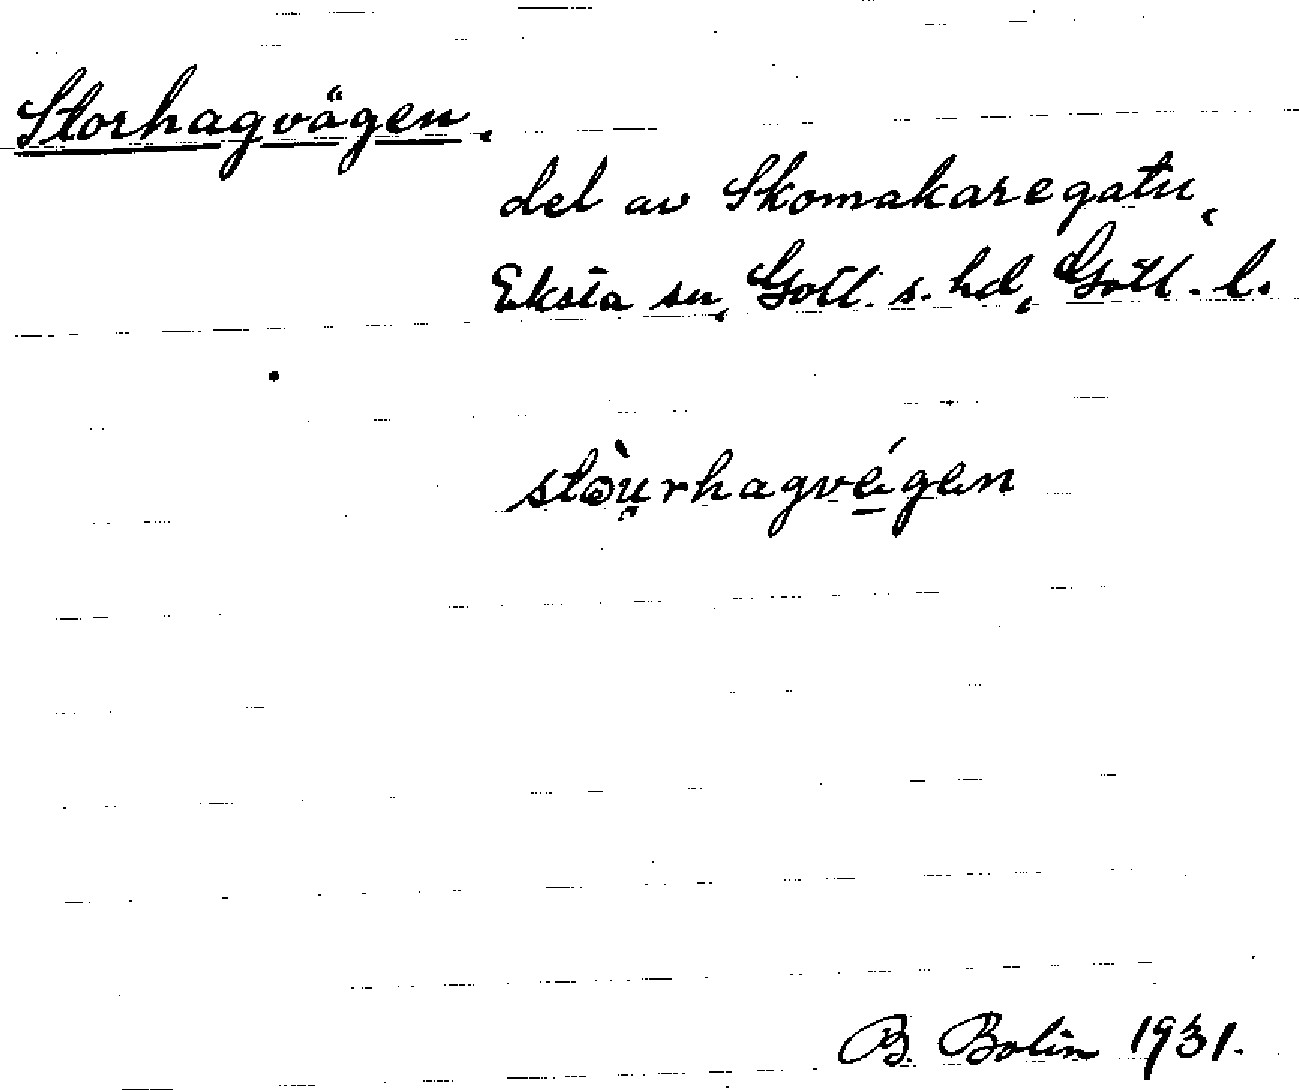 Storhagvägen,
del av Skomakaregatu,
Eksta sn, Gotl. s. hd, Gotl. l.
stòu̯rhagvé̱gen
B. Bolin 1931.